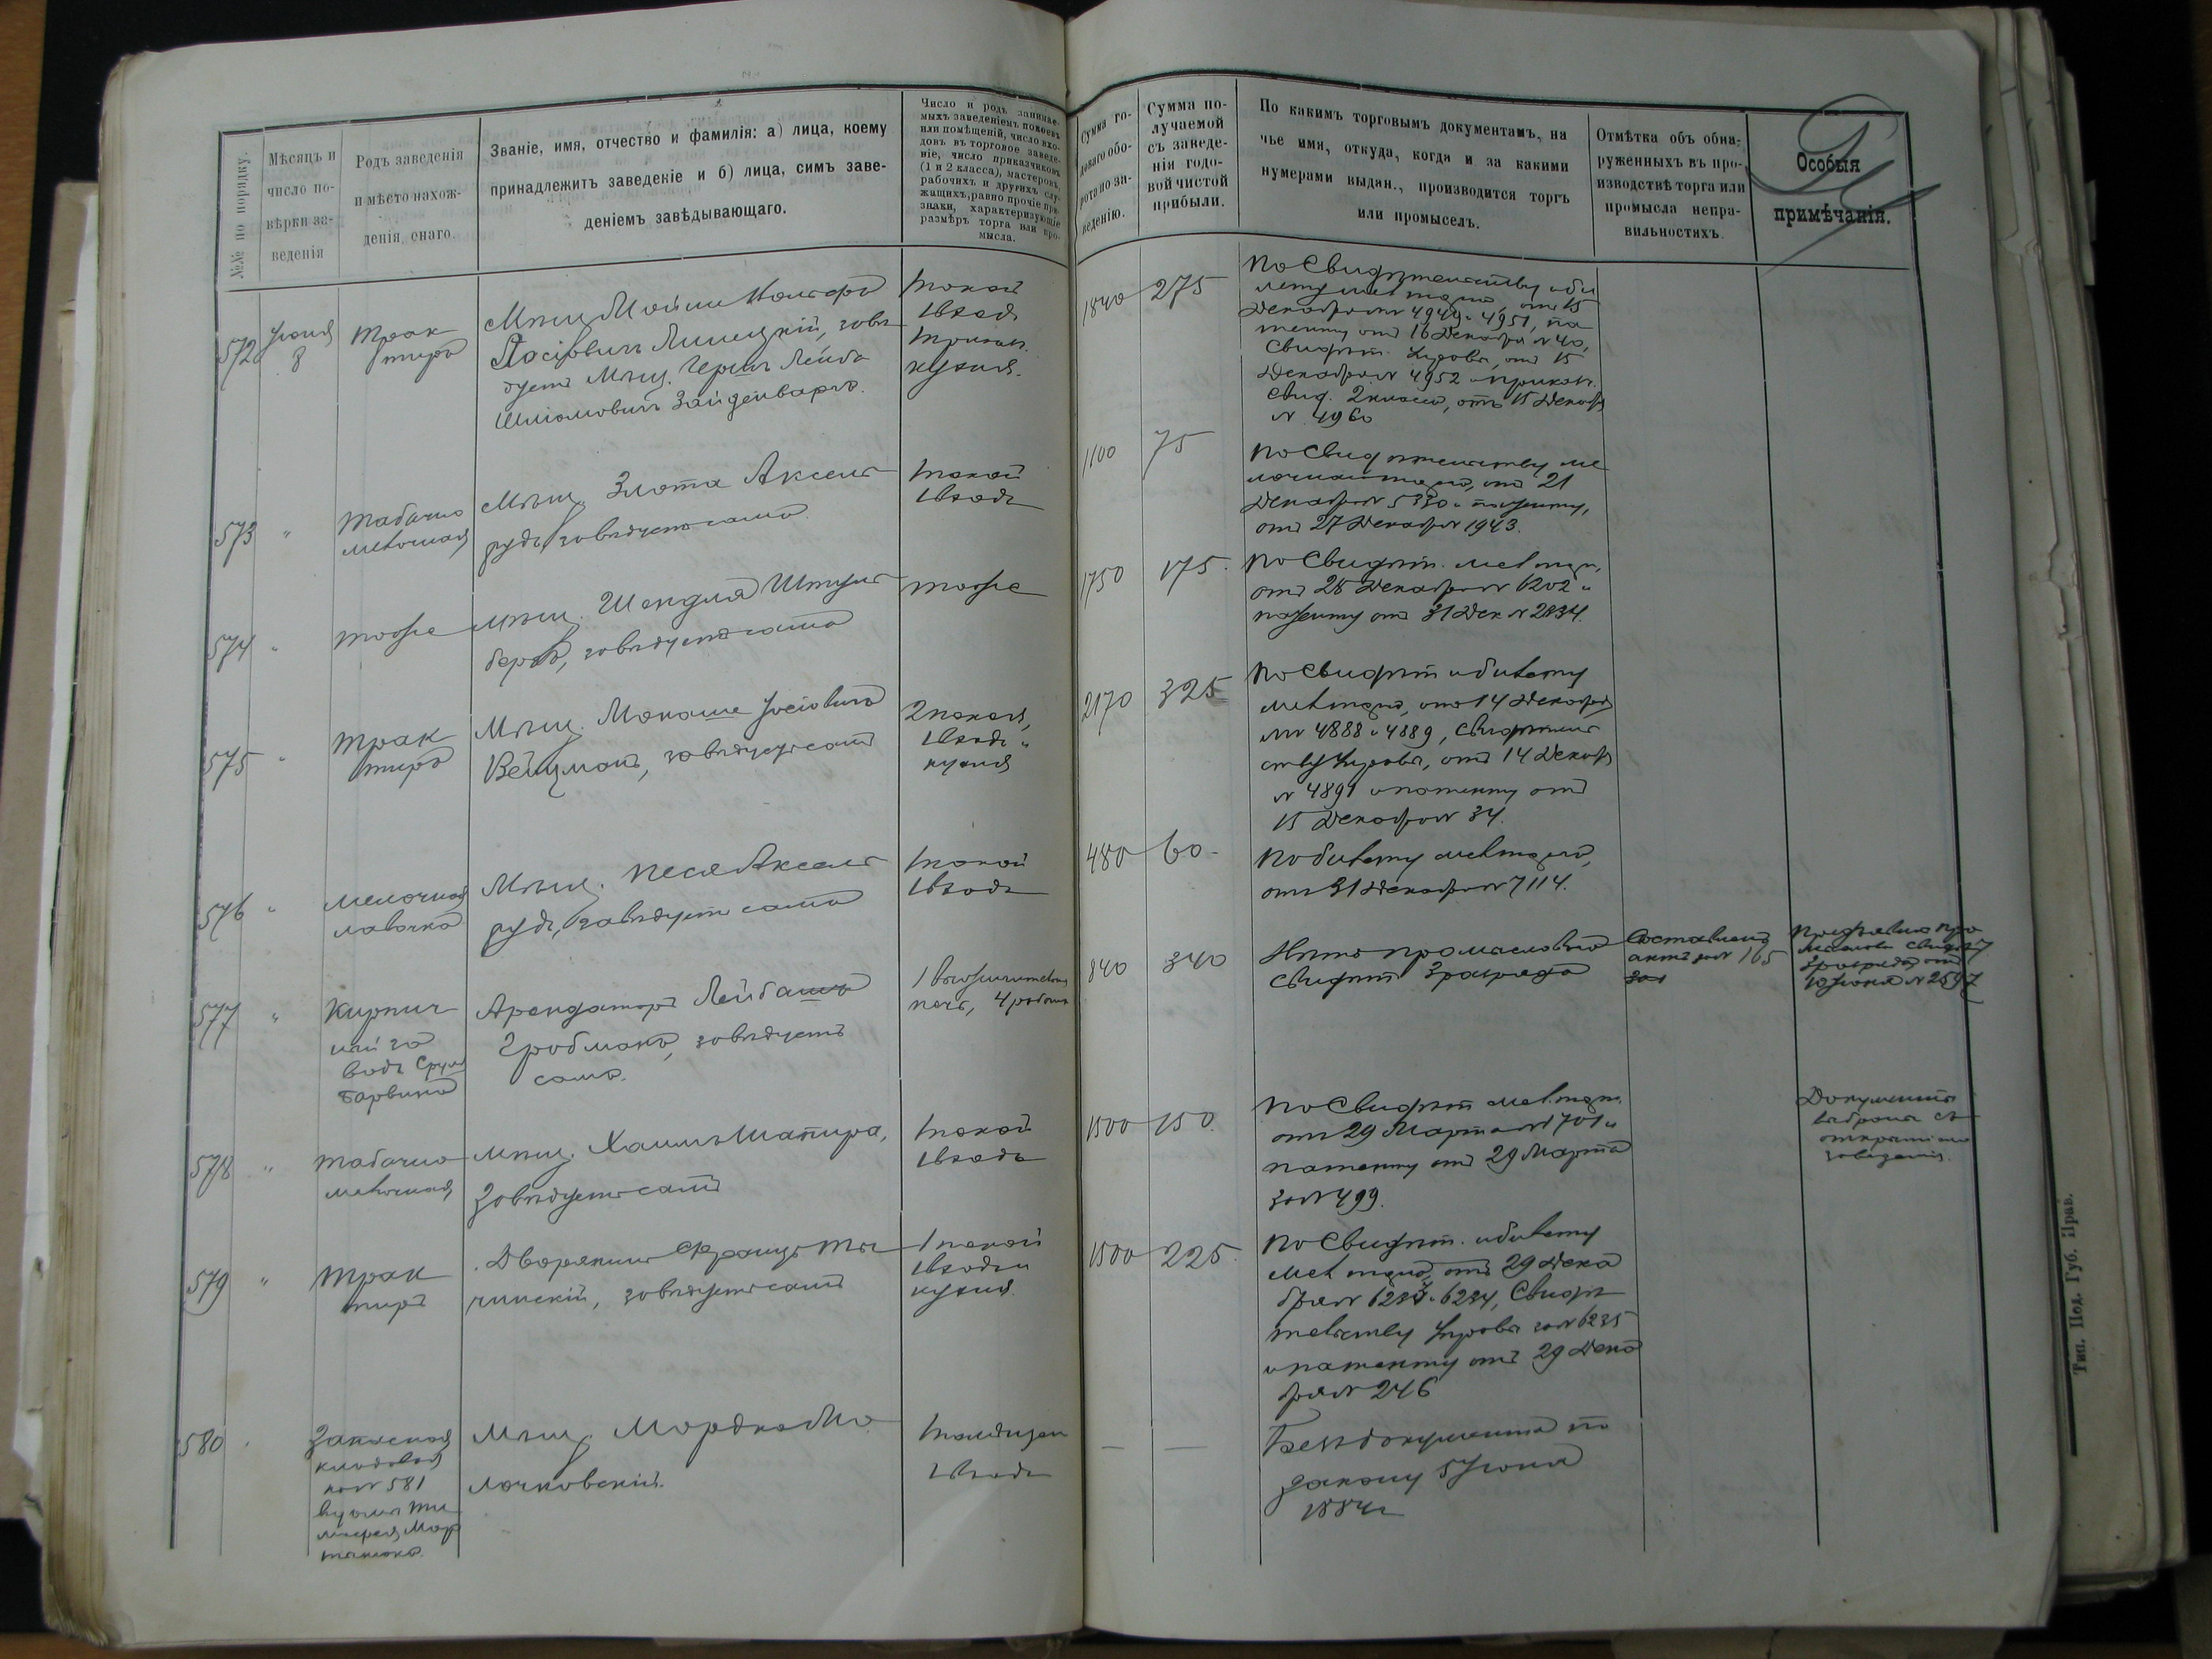 №№ по порядку.
Мѣсяцъ и
число по-
вѣрки за-
веденія
Родъ заведенія
и мѣсто нахож-
денія онаго.
Званіе, имя, отчество и фамилія: а) лица, коему
принадлежитъ заведеніе и б) лица, симъ заве-
деніемъ завѣдывающаго.
Число и родъ занимае-
мыхъ заведеніемъ покоевъ
или помѣщеній, число вхо-
довъ въ торговое заведе-
ніе, число приказчиковъ
(1 и 2 класса), мастеровъ,
рабочихъ и другихъ слу-
жащихъ, равно прочіе при-
знаки, характеризующіе
размѣръ торга или про-
мысла.
Сумма го-
доваго обо-
рота по за-
веденію.
Сумма по-
лучаемой
съ заведе-
нія годо-
вой чистой
прибыли.
По какимъ торговымъ документамъ, на
чье имя, откуда, когда и за какими
нумерами выдан., производится торгъ
или промыселъ.
Отмѣтка объ обна-
руженныхъ въ про-
изводствѣ торга или
промысла непра-
вильностяхъ.
Особыя
примѣчанія.
572
Іюня
8
Трак
тиръ
Мѣщ.
Іосіовичъ Линецкій, завѣ
дуетъ Мѣщ. Герщъ Лейба
Шліомовичъ Зайденваргъ.
1 покой
1 входъ
кухня.
1840
275
По Свидѣтельству и би
лету мел торга, отъ 15
Декабря №№ 4949 и 4951, па
тенту отъ 16 Декабря № 40,
Свидѣт. Управы, отъ 15
Декабря № 4952 и прикащ.
Свид. 2 класса, отъ 15 Декабря
№ 4960
573
"
Табачно
мелочная
Мѣщ. Злота Аксель
рудъ, завѣдуетъ сама.
1 покой
1 входъ
1100
75
По Свидѣтельству ме
лочнаго торга, отъ 21
Декабря № 5330 и патенту,
отъ 27 Декабря № 1943.
574
"
тоже
Мѣщ. Шендля Штуль
берѣ, завѣдуетъ сама
тоже
1750
175.
По Свидѣт. мел торга,
отъ 28 Декабря № 6202 и
патенту отъ 31 Дек № 2834.
575
"
Трак
тиръ
Мѣщ. Манаше Іосіовичъ
Вейцманъ, завѣдуетъ самъ
2 покоя,
1 входъ и
кухня
2170
325
По Свидѣт и билету
мел торга, отъ 14 Декабря
№№ 4888 и 4889, Свидѣтель
ству Управы, отъ 14 Декабря
№ 4891 и патенту отъ
15 Декабря № 34.
576
"
Мелочная
лавочка
Мѣщ. Песя Аксель
рудъ, завѣдуетъ сама
1 покой
1 входъ
480
60-
По билету мел торга,
отъ 31 Декабря № 7114.
577
"
Кирпич
ный за
водъ Сруля
Барвина
Арендаторъ Лейба
Гробманъ, завѣдуетъ
самъ.
печь, 4 рабочих
840
340
Нѣтъ промысловаго
свидѣт 3 разряда
Составленъ
актъ за № 165
Предъявилъ про
мыслов. Свидѣт
3 разряда отъ
10 Іюня № 2597
578
"
Табачно
мелочная
Мѣщ. Хаимъ Шапира,
Завѣдуетъ самъ
1 покой
1 входъ
1500
150.
По Свидѣт мел торга
отъ 29 Марта № 1701 и
патенту отъ 29 Марта
за № 499.
Документы
выбраны съ
открытiемъ
заведенія.
579
"
Трак
тиръ
Дворянинъ Францъ Ты
чинскій, завѣдуетъ самъ
1 покой
1 входъ и
кухня.
1500
225.
По Свидѣт. и билету
мел торга, отъ 29 Дека
бря № 6233 и 6234, Свидѣ
тельству Управы за № 6235
и патенту отъ 29 Дека
бря № 246
580
Запасная
кладовая
къ № 581
въ домѣ
Мѣщ. Мордко Мо
лочковскій.
1 входъ
—
—
Безъ документа по
закону 5 Іюня
1884 г
Тип. Под. Губ. Прав.